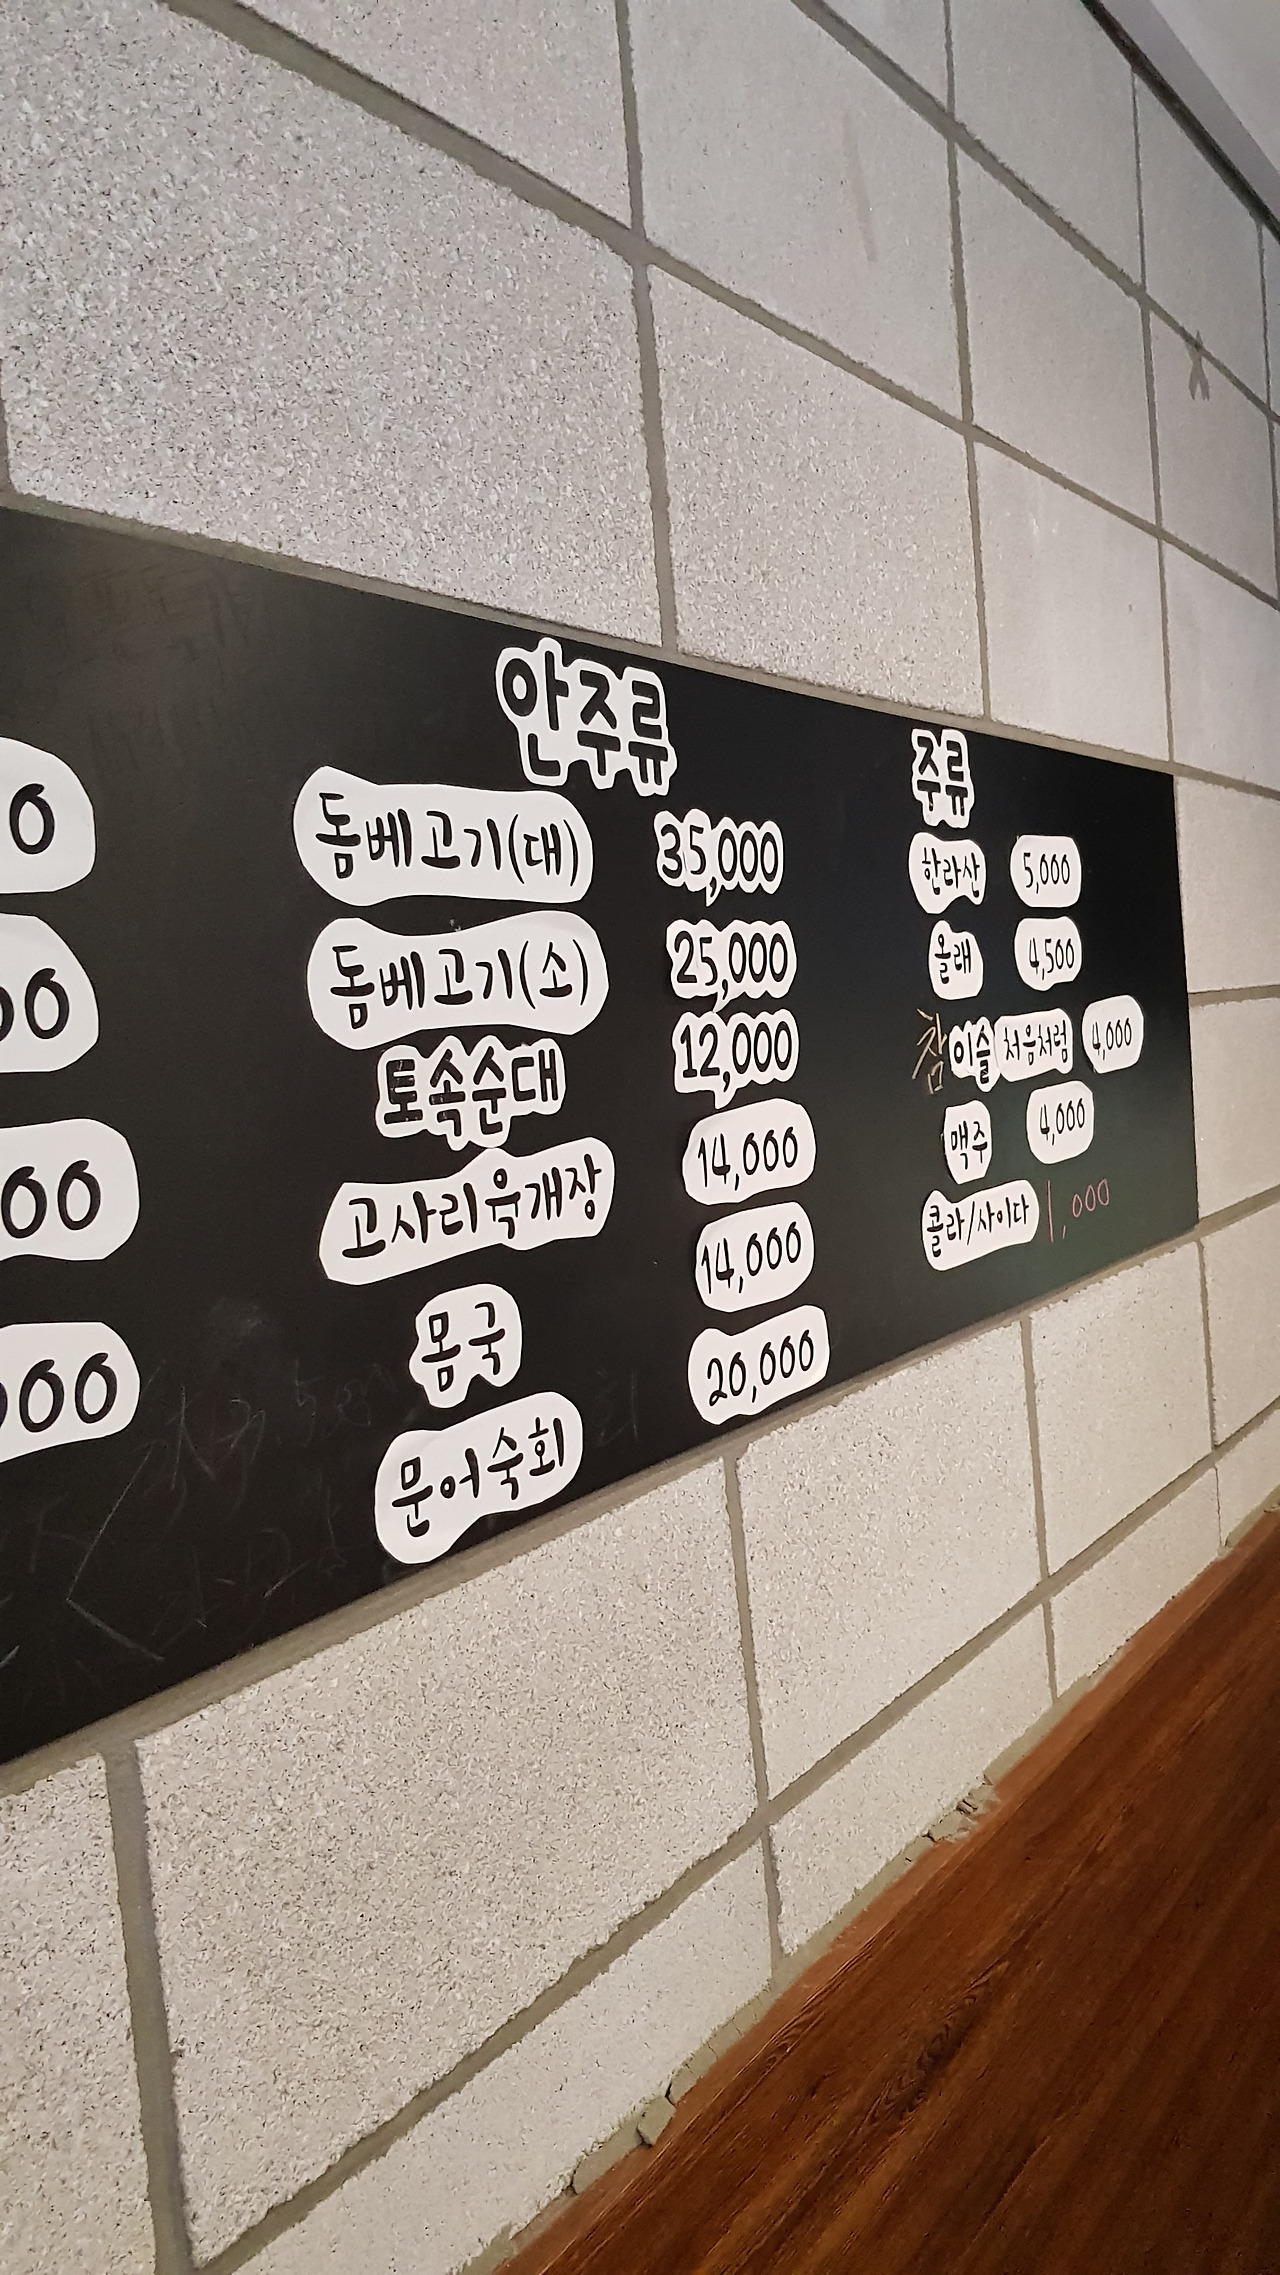 0
00
00
000
안주류
돔베고기(대) 35,000
돔베고기(소) 25,000
토속순대 12,000
고사리육개장 14,000
몸국 14,000
문어숙회 20,000
주류
한라산 5,000
올래 4,500
참이슬 처음처럼 4,000
맥주 4,000
콜라/사이다 1,000